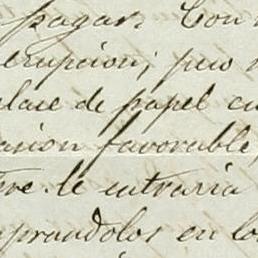 pagar. Con
erupcion; pero
clase de papel en
asion favorable,
le entraria
mprandolos en lo